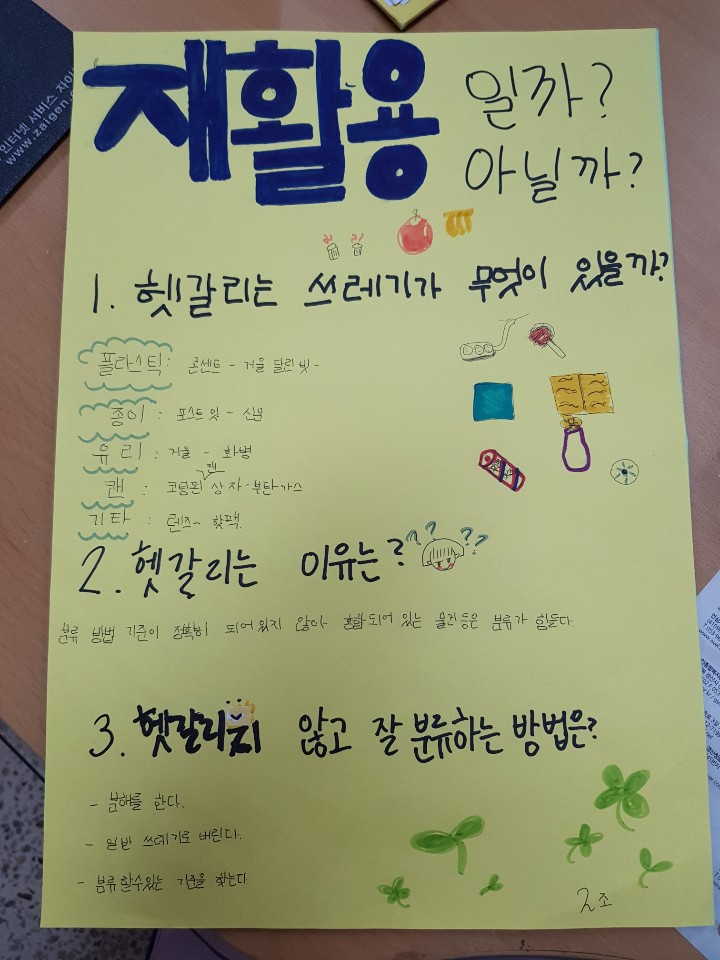 인터넷 서비스 지이
www.zaigen.c
재활용 일까?
아닐까?
1. 헷갈리는 쓰레기가 무엇이 있을까?
플라스틱: 콘센트 - 거울 달린 빗 -
종이 : 포스트잇 - 신문
유리 : 거울 - 화병
캔
캔 : 코팅된 상자 - 부탄가스
기타 : 렌즈 - 핫팩
2. 헷갈리는 이유는?
분류 방법 기준이 정확히 되어있지 않아 혼합되어 있는 물건등은 분류가 힘들다.
3. 헷갈리지 않고 잘 분류하는 방법은?
- 분해를 한다.
- 일반 쓰레기로 버린다.
- 분류할수있는 기준을 찾는다.
2조